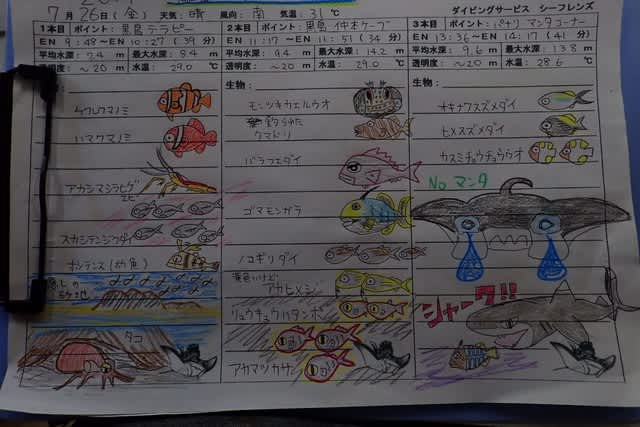 7月26日(金) 天気:晴 風向:南 気温:31℃ ダイビングサービス シーフレンズ
1本目 ポイント:黒島テラピー
EN 9:48〜EN 10:27 (39分)
平均水深: 7.4 m 最大水深: 8.4 m
透明度:〜20 m 水温: 29.0℃
クマノミ
ハマクマノミ
アカシマシラヒゲ
エビ
スカシテンジクダイ
(幼魚)
タコ
2本目 ポイント:黒島 仲本ケーブ
EN 11:17〜EN 11:51 (34分)
平均水深: 9.4 m 最大水深: 14.2 m
透明度:〜20 m 水温: 29.0℃
生物:
モンツキカエルウオ
クマドリ
バラフエダイ
ゴマモンガラ
ノコギリダイ
黄色いけど
アカヒメジ
リュウキュウハタンポ
アカマツカサ
3本目 ポイント:パナリ マンタコーナー
EN 13:36〜EN 14:17 (41分)
平均水深: 9.6 m 最大水深: 13.8 m
透明度:〜20 m 水温: 28.6℃
生物:
オキナワスズメダイ
ヒメスズメダイ
カスミチョウチョウウオ
No マンタ
シャーク!!